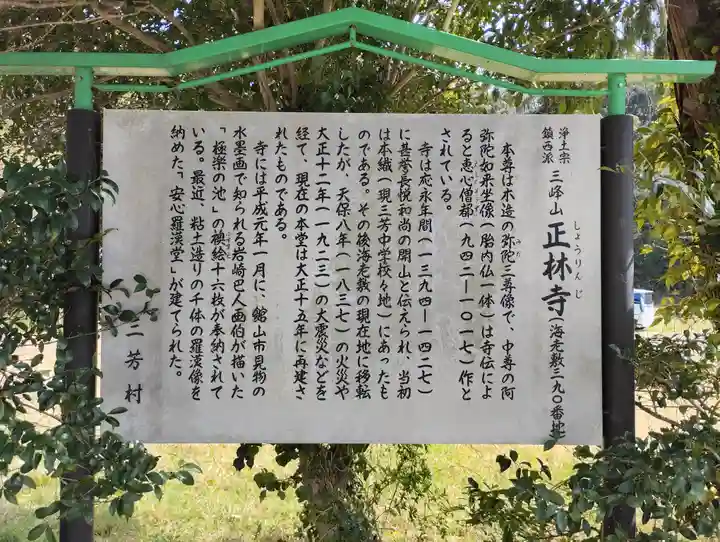 浄土宗
鎮西派
三峰山 正林寺(海老敷三九〇番地)
しょうりんじ
本尊は木造の弥陀三尊像で、中尊の阿
みだ
弥陀如来坐像(胎内仏一体)は寺伝によ
ると恵心僧都(九四二―一〇一七)作と
されている。
寺は応永年間(一三九四―一四二七)
に甚誉長悦和尚の開山と伝えられ、当初
は本織(現三芳中学校々地)にあったも
のである。その後海老敷の現在地に移転
したが、天保八年(一八三七)の火災や
大正十二年(一九二三)の大震災などを
経て、現在の本堂は大正十五年に再建さ
れたものである。
寺には平成元年一月に、館山市見物の
水墨画で知られる岩崎巴人画伯が描いた
「極楽の池」の襖絵十六枚が奉納されて
ふすまえ
いる。最近、粘土造りの千体の羅漢像を
納めた「安心羅漢堂」が建てられた。
三芳村